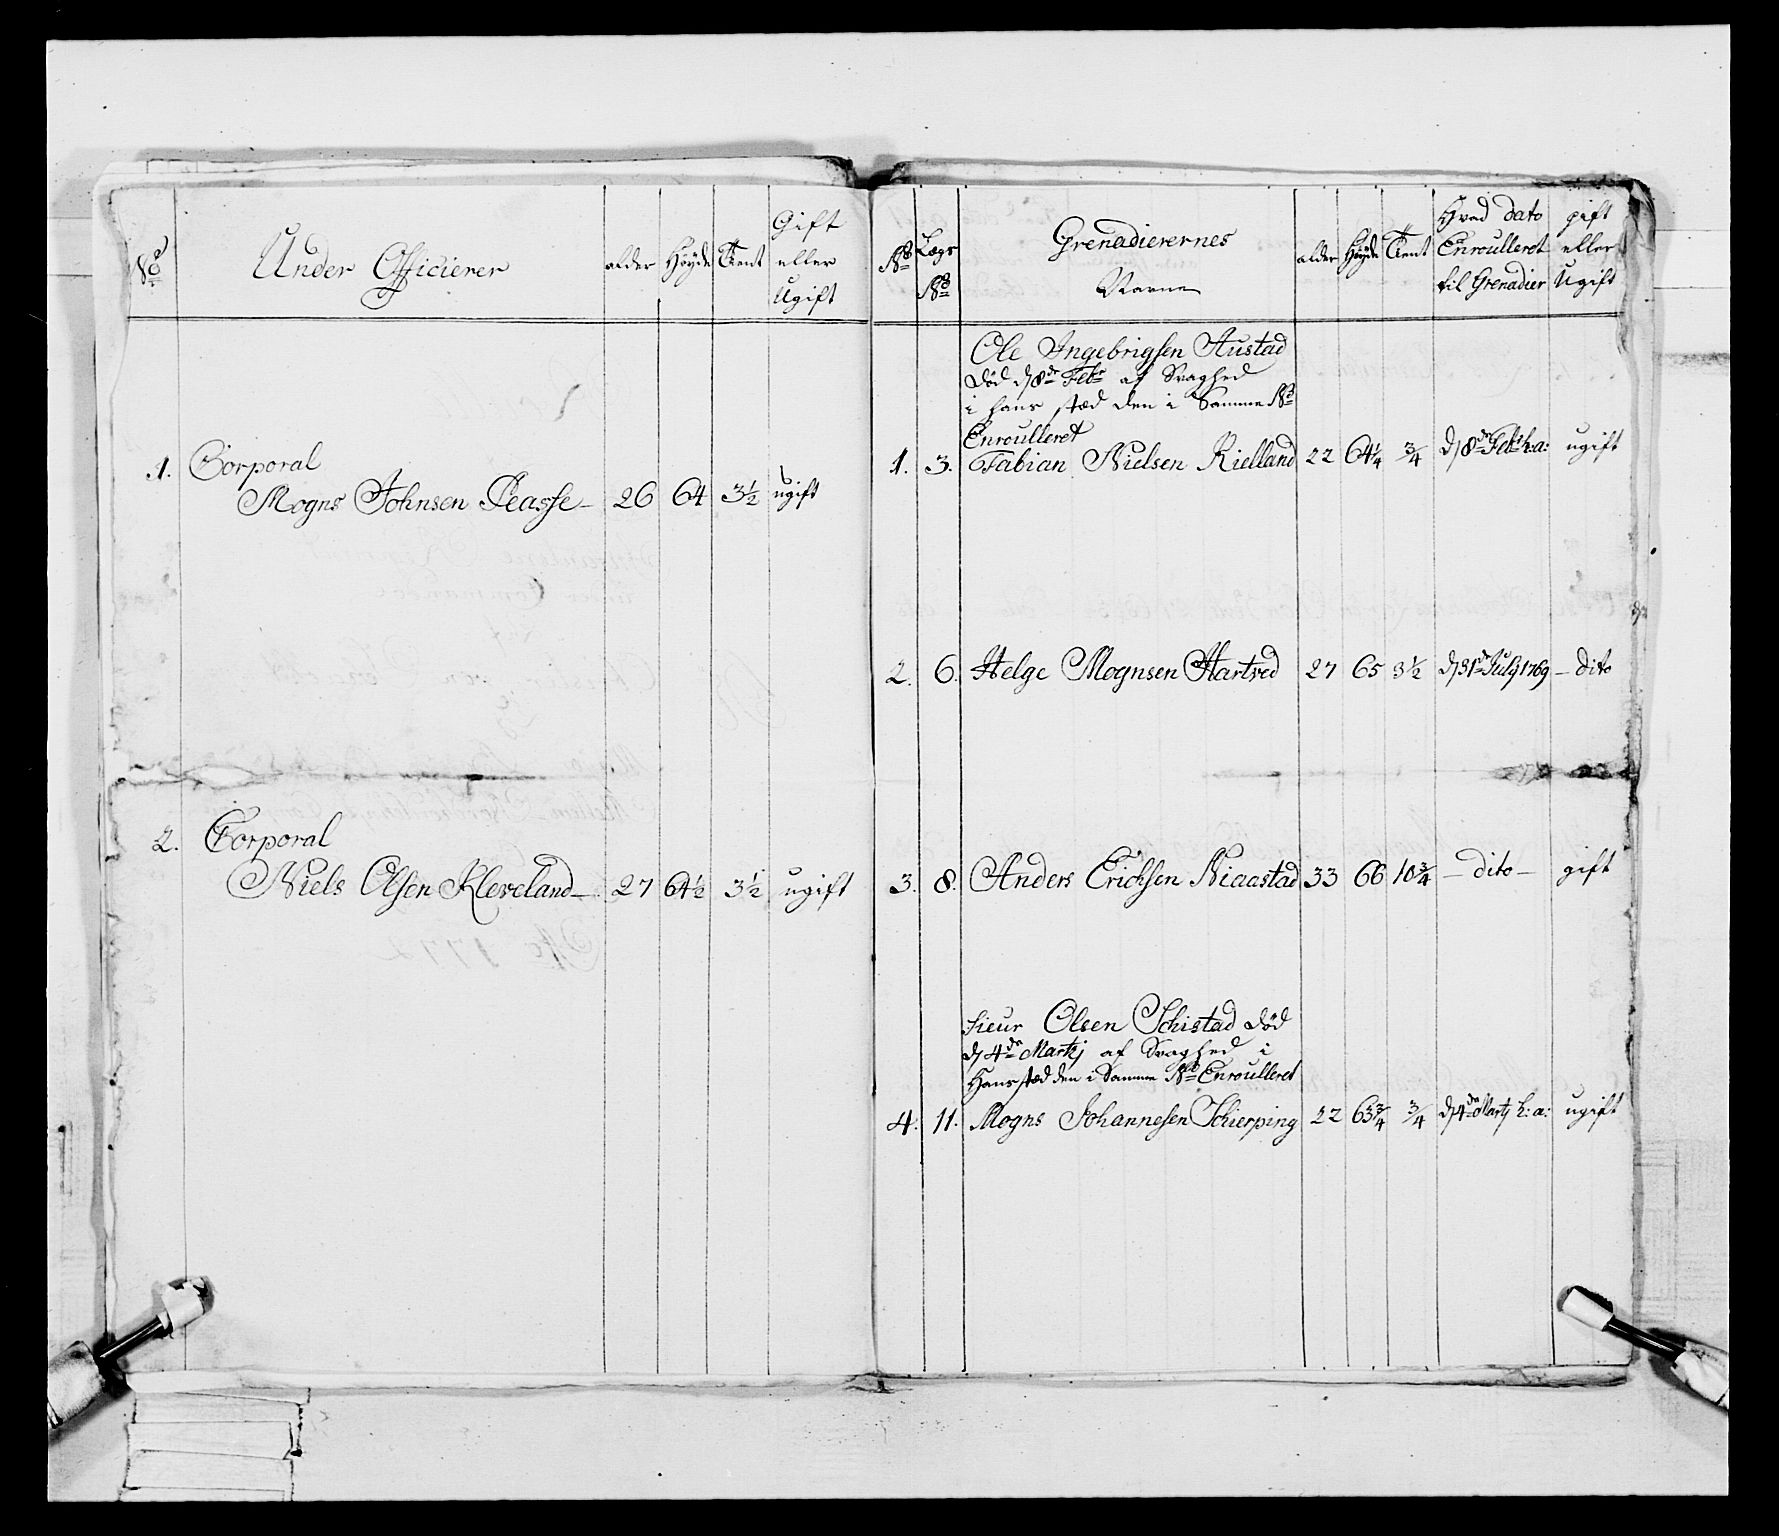 No
Under Officierer
alder
Høyde
Tient
Gift
eller
Ugift
1. Corporal
Mogns Johnsen Peasse - 26 64 3½ ugift
2. Corporal
Niels Olsen Kleveland - 27 64½ 3½ ugift
No
Lægs
No
Grenadierernes
Navne
alder
Høyde
Tient
Hvad dato
Enroulleret
til Grenadier
gift
eller
Ugift
Ole Ingebrigsen Austad
død d 8de Febr af Svaghed
i hans stæd den i Samme No
Enroulleret
1. 3. Fabian Nielsen Rielland 22 64¼ ¾ d 8de Febr h: a: ugift
2. 6. Helge Mognsen Hartved 27 65 3½ d 31de July 1769 - dito
3. 8. Anders Ericksen Niaastad 33 66 10¾ - dito - gift
Sieur Olsen Schistad død
d 4de Martj af Svaghed i
Hans stæd den i Samme No Enroulleret
4. 11. Mogns Johannesen Schierping 22 63¾ ¾ d 4de Martj h: a: ugift